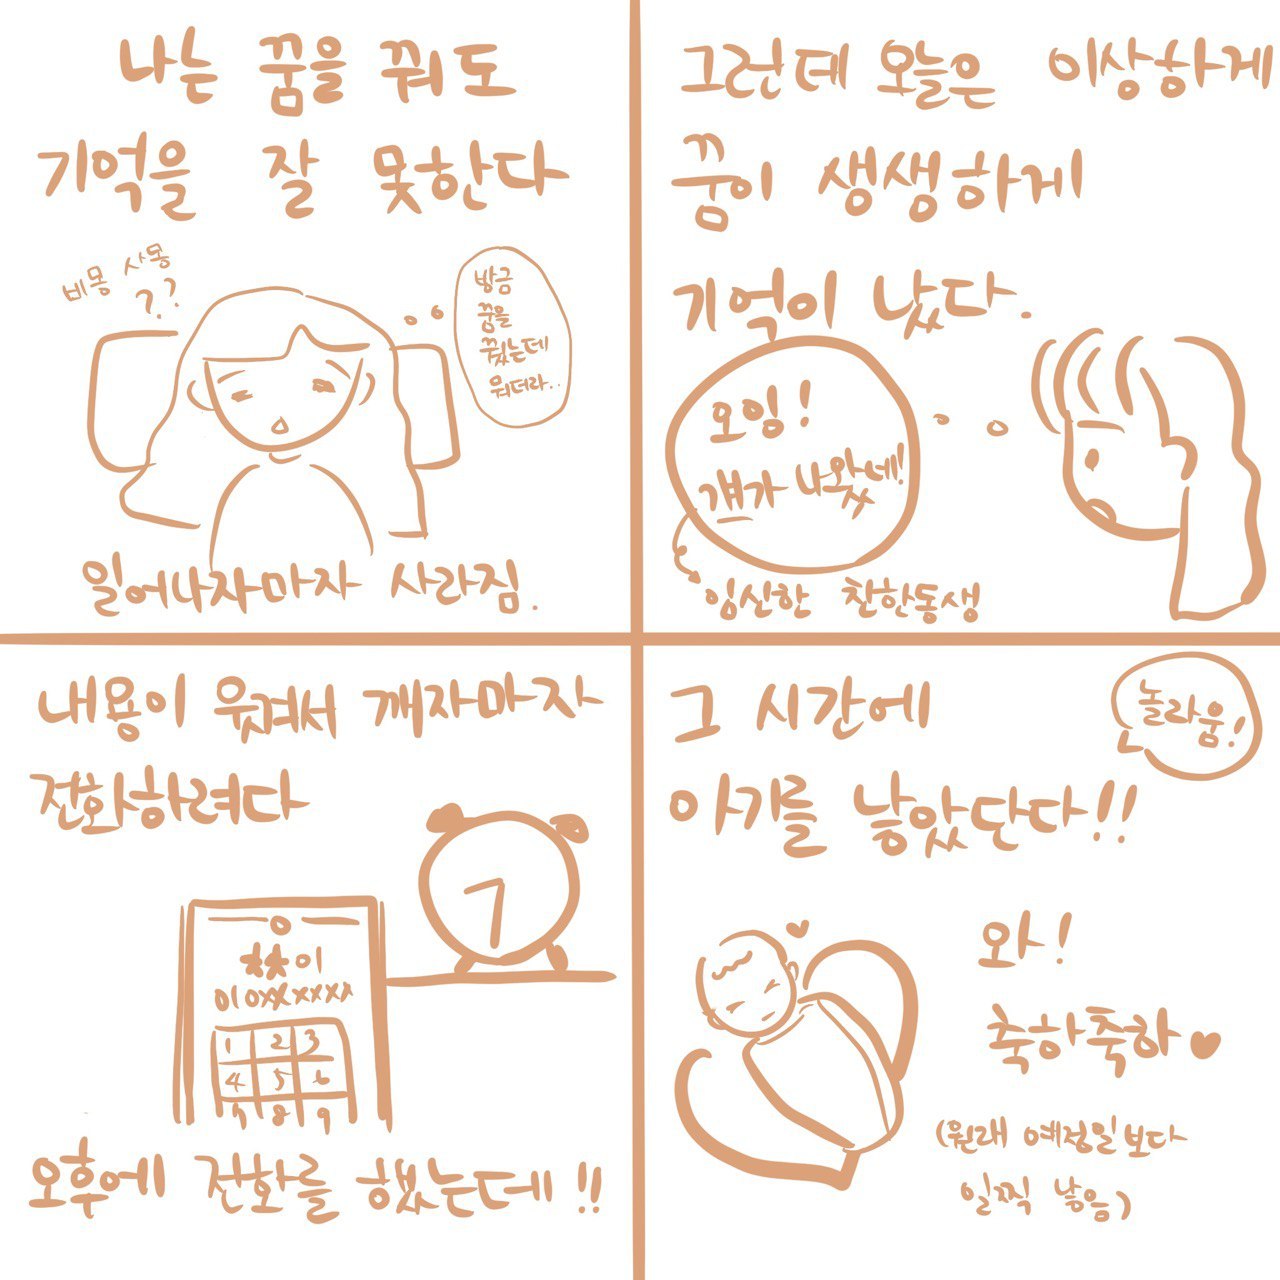 나는 꿈을 꿔도
기억을 잘 못한다
비몽 사몽
??
방금
꿈을
꿨는데
뭐더라..
일어나자마자 사라짐.
그런데 오늘은 이상하게
꿈이 생생하게
기억이 났다.
오잉!
걔가 나왔네!
임산한 친한동생
내용이 웃겨서 깨자마자
전화하려다
7
찾이
010xxxxxxxx
1 2 3
4 5 6
7 8 9
오후에 전화를 했는데!!
그 시간에
놀라움!
아기를 낳았단다!!
와!
축하축하♥
(원래 예정일보다
일찍 낳음)